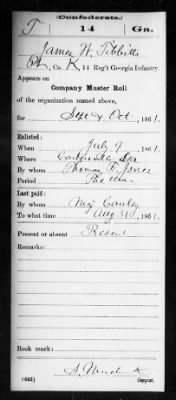 Confederate.
T 14 Ga.
James W. Tibbitts
Pvt, Co. K, 14 Reg't Georgia Infantry.
Appears on
Company Muster Roll
of the organization named above,
for Sept & Oct, 1861.
Enlisted:
When July 9, 1861.
Where
By whom Thomas T. Jones
Period The war
Last paid:
By whom Maj
To what time Aug 31, 1861.
Present or absent Present
Remarks:
Book mark:
(642) Copyist.